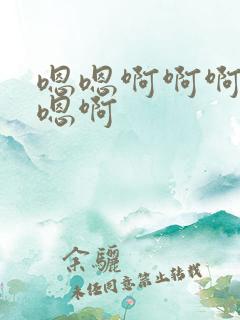 嗯嗯啊啊啊
嗯啊
余骊
未经同意禁止转载